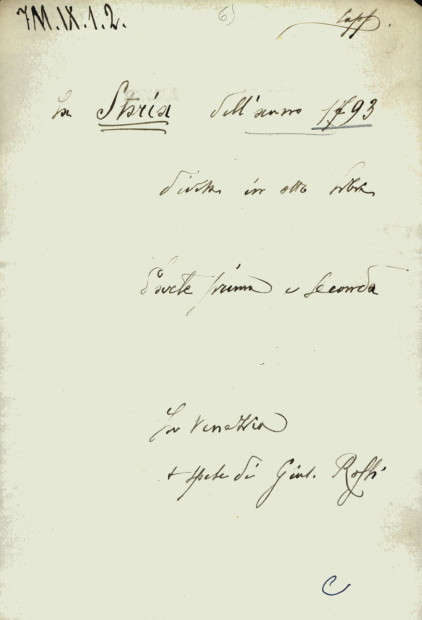 7M.IX.1.2.
6)
La Storia dell'anno 1793
divisa in otto libri
Parte prima e seconda
In Venezia
a spese di Giul. Rossi
C